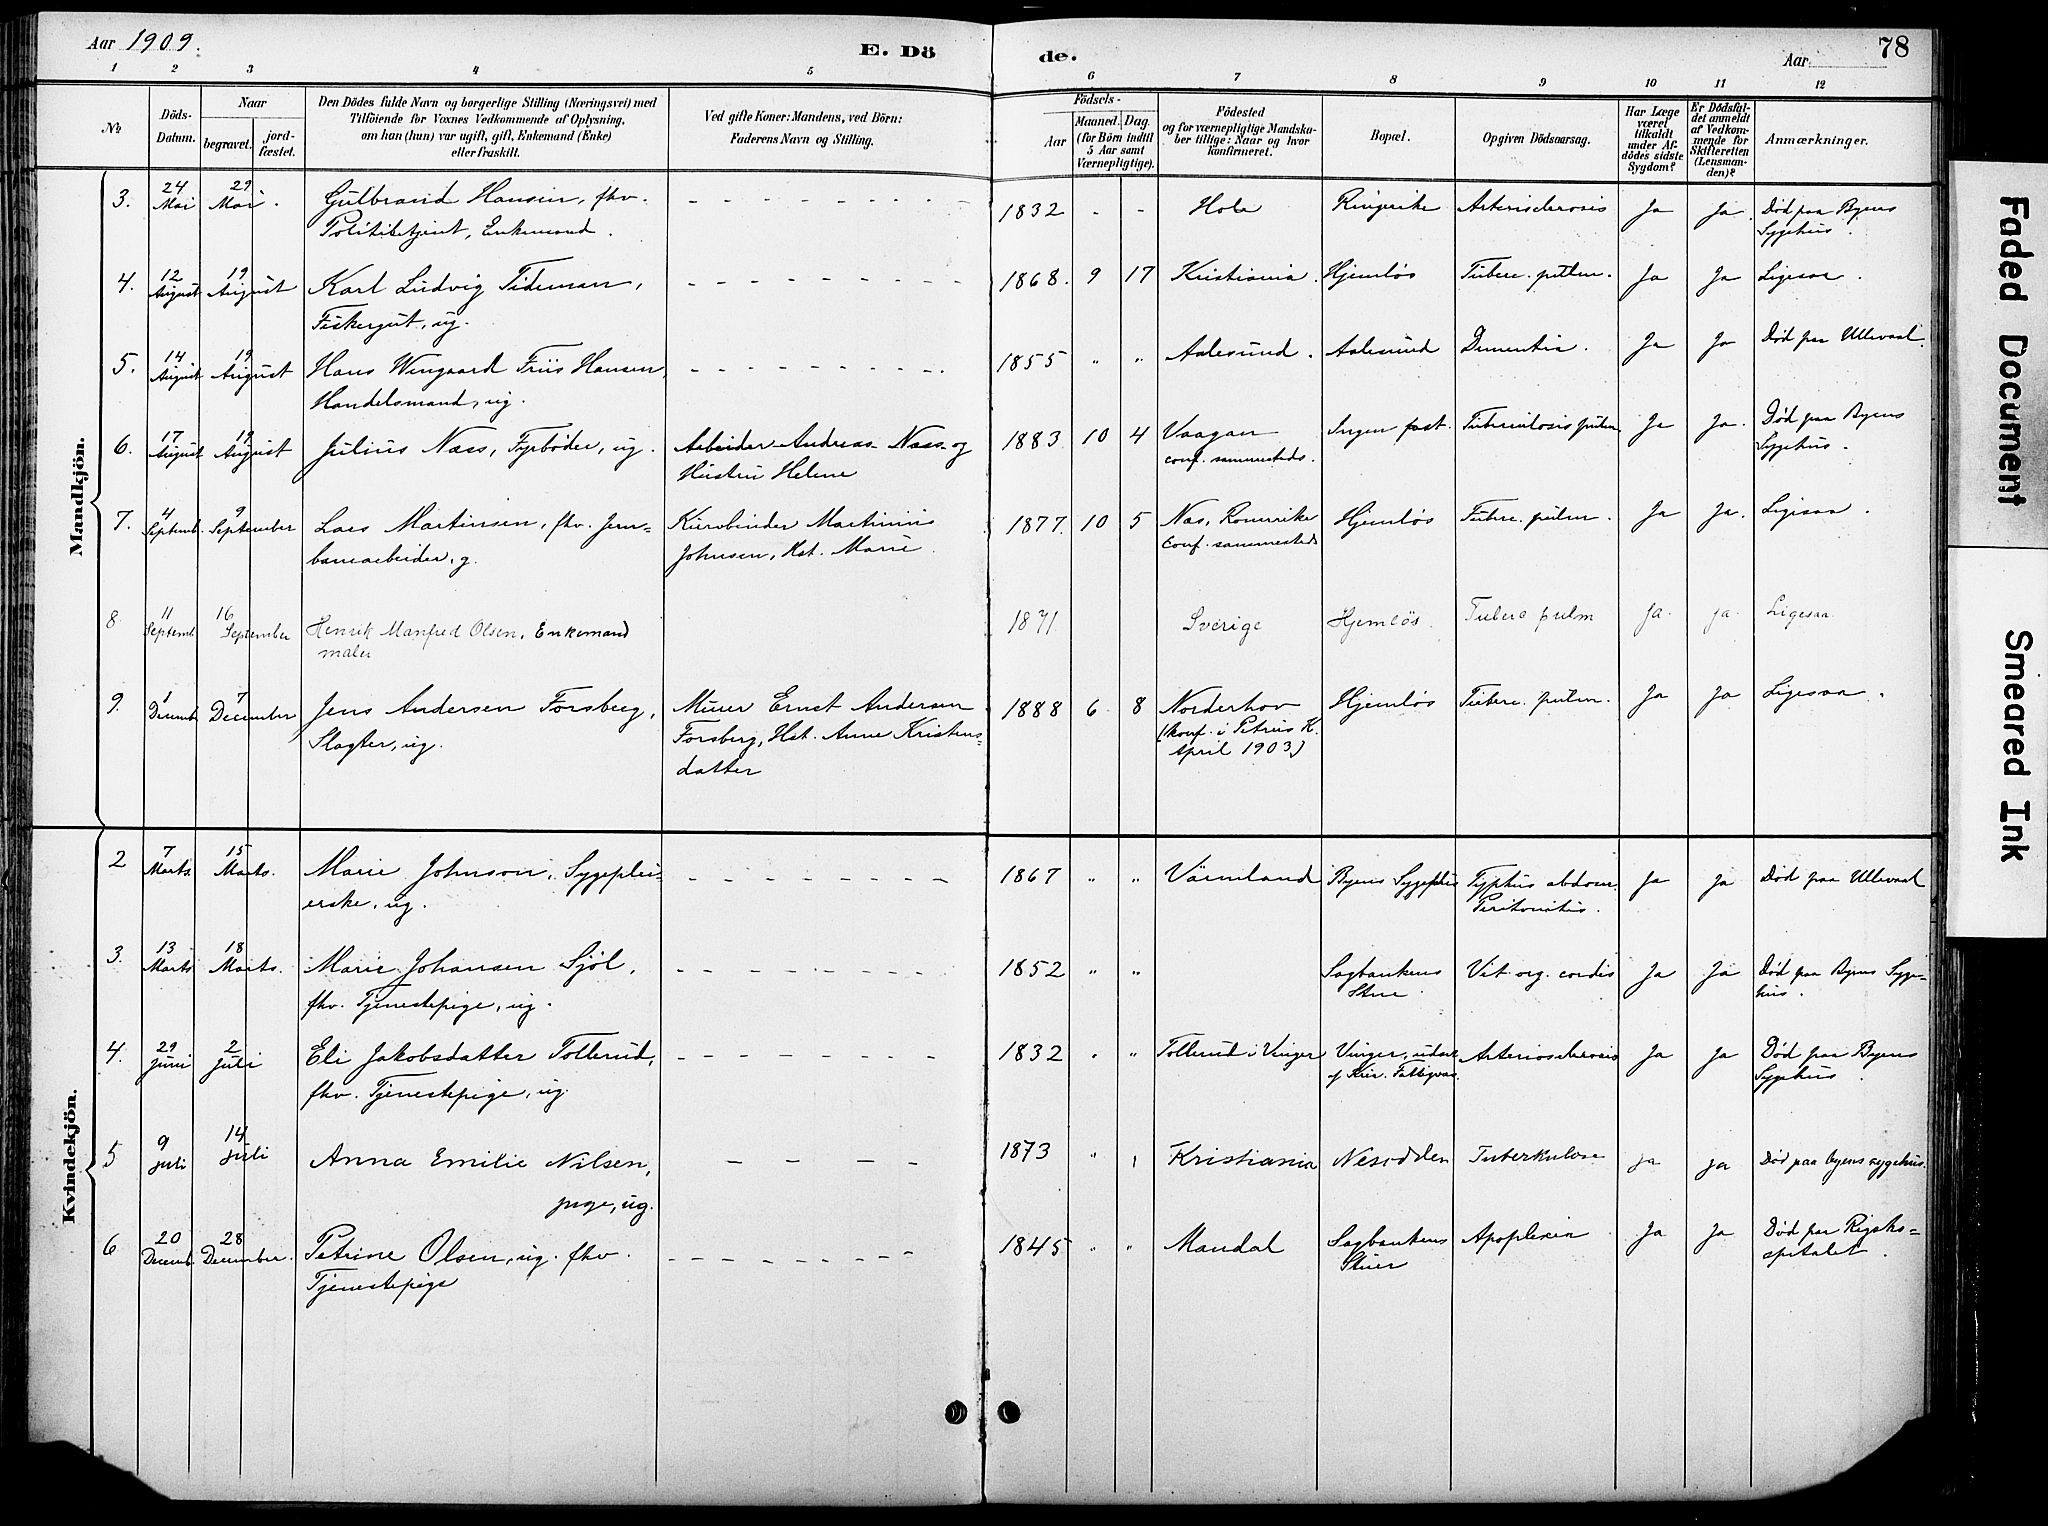 Aar 1909.
E. Dö
de.
Aar
78
1 2 3 4 5 6 7 8 9 10 11 12
№
Döds-
Datum.
Naar
begravet.
jord-
fæstet.
Den Dödes fulde Navn og borgerlige Stilling (Næringsvei) med
Tilföiende for Voxnes Vedkommende af Oplysning,
om han (hun) var ugift, gift, Enkemand (Enke)
eller fraskilt.
Ved gifte Koner: Mandens, ved Börn:
Faderens Navn og Stilling.
Födsels-
Aar
Maaned.
Dag.
(for Börn indtil
5 Aar samt
Værnepligtige).
Födested
og for værnepligtige Mandska-
ber tillige: Naar og hvor
konfirmeret.
Bopæl.
Opgiven Dödsaarsag.
Har Læge
været
tilkaldt
under Af-
dödes sidste
Sygdom?
Er Dödsfal-
det anmeldt
af Vedkom-
mende for
Skifteretten
(Lensman-
den)?
Anmærkninger.
Mandkjön.
3. 24 Mai 29 Mai. Gulbrand Hansen, fhv. 1832 - - Hole Ringerike Arteriosclerosis Ja Ja. Död paa Byens
Politibetjent, Enkemand. Sygehus.
4. 12 August 19 August Karl Ludvig Tideman, 1868. 9 17 Kristiania. Hjemlös Tuberc. pulm. Ja Ja Ligesaa.
Fiskergut, ug.
5. 14 August 19 August Hans Wingaard Friis Hansen, 1855 " " Aalesund. Aalesund Dementia. Ja Ja Död paa Ullevaal.
Handelsmand, ug.
6. 17 August 19 August Julius Næss, Fyrböder, ug. Arbeider Andreas Næss og 1883 10 4 Vaagan Ingen fast. Tuberculosis pulm Ja Ja. Död paa Byens
Hustru Helene conf. sammesteds. Sygehus.
7. 4 Septemb. 9 September Lars Martinsen, fhv. Jern- Kurvbinder Martinius 1877. 10 5 Nes, Romerike Hjemlös Tuberc. pulm. Ja Ja. Ligesaa.
banearbeider, g. Johnsen, Hst. Marie. Conf. sammesteds
8. 11 Septemb 16 September Henrik Manfred Olsen, Enkemand 1871 Sverige Hjemlös. Tuberc pulm Ja. ja. Ligesaa.
maler
9. 1 Decemb. 7 December Jens Andersen Forsberg, Murer Ernst Andersen 1888 6 8 Norderhov Hjemlös Tuberc. pulm. Ja Ja Ligesaa.
Slagter, ug. Forsberg, Hst. Anne Kristens- (Konf. i Petrus K.
datter April 1903)
Kvindekjön.
2 7 Marts. 15 Marts. Marie Johnson, Sygeplei- 1867 " " Värmland Byens Sygehus Typhus abdom. Ja Ja Död paa Ullevaal
erske, ug. Peritonitis.
3. 13 Marts 18 Marts. Marie Johansen Sjöl, 1852 " " Sagbankens Vit. org. cordis Ja Ja Död paa Byens Syge-
fhv. Tjenestepige, ug. Stue. hus.
4. 29 Juni 2 Juli Eli Jakobsdatter Tollerud, 1832 " " Tollerud i Vinger Vinger, Arteriosclerosis Ja Ja Död paa Byens
fhv. Tjenestepige, ug. af Kria. Fattigvæs. Sygehus.
5 9 juli 14 juli Anna Emilie Nilsen, 1873 " Kristiania Nesodden Tuberkulose ja ja Död paa byens sygehus.
pige, ug.
6 20 Decemb. 28 December. Petrine Olsen, ug. fhv. 1845 " " Mandal Sagbankens Apoplexia Ja Ja Död paa Rigshos-
Tjenestepige Stuer pitalet.
Faded Document
Smeared Ink